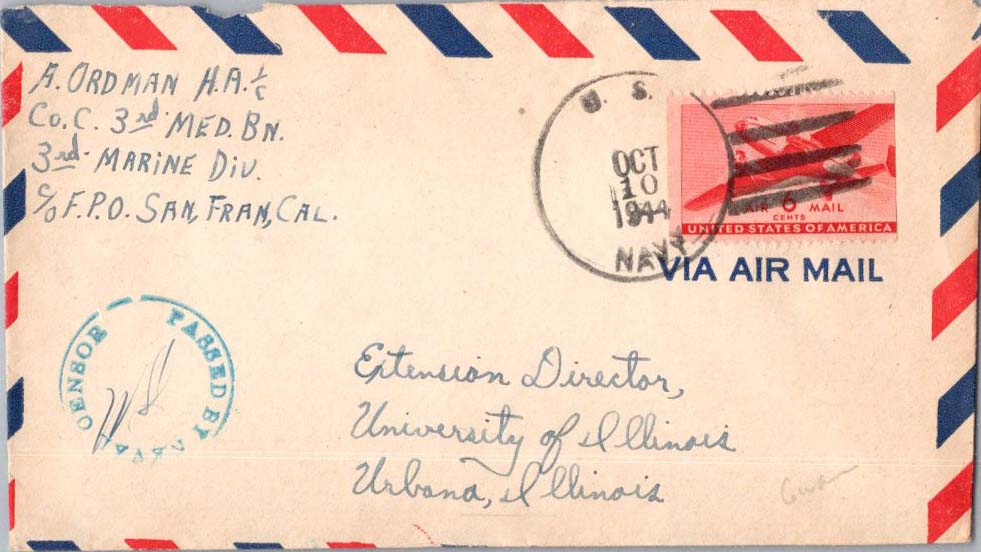 A. ORDMAN H.A. 1/c
Co. C. 3rd MED. BN.
3rd MARINE DIV.
c/o F.P.O. SAN, FRAN, CAL.
U. S.
OCT
10
1944
NAVY
AIR 6 MAIL
CENTS
UNITED STATES OF AMERICA
VIA AIR MAIL
PASSED BY NAVAL CENSOR
Extension Director,
University of Illinois
Urbana, Illinois
Guam